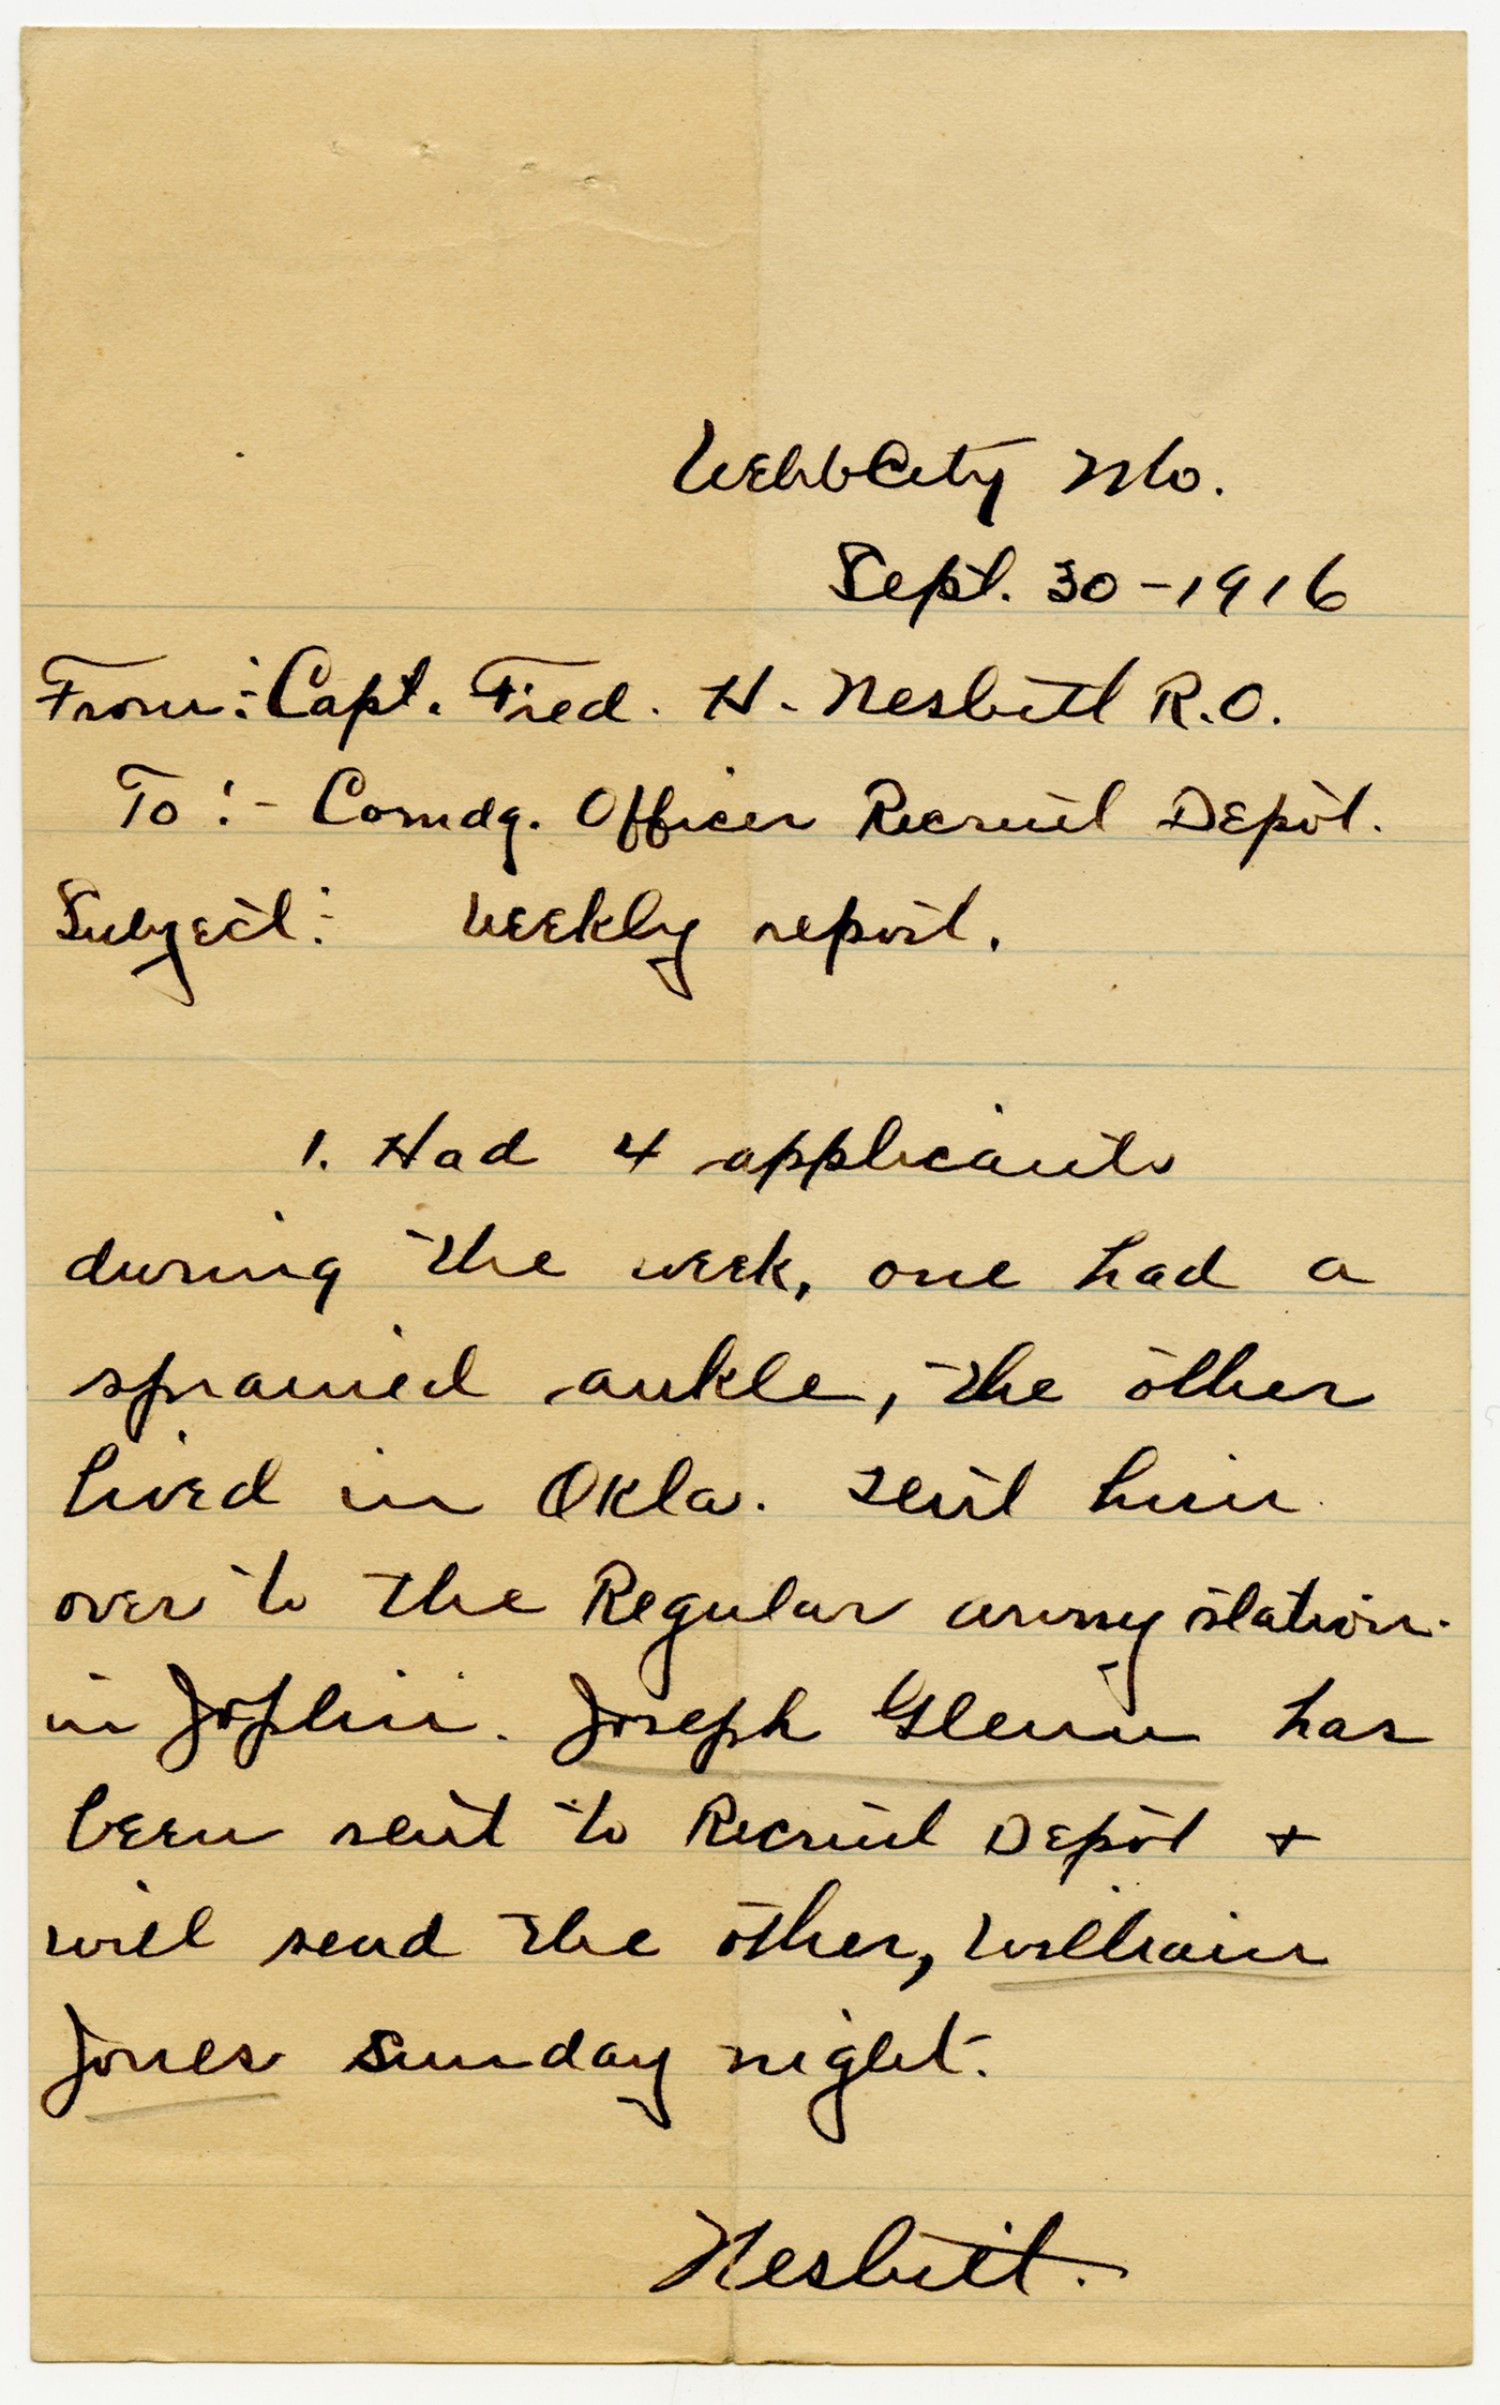 Webb City Mo.
Sept. 30-1916
From:- Capt. Fred. H. Nesbitt R.O.
To:- Comdg. Officer Recruit Depot.
Subject:- Weekly report.
1. Had 4 applicants
during the week, one had a
sprained ankle, the other
lived in Okla. sent him
over to the Regular army station
in Joplin. Joseph Glenn has
been sent to Recruit Depot +
will send the other, William
Jones Sunday night.
Nesbitt.